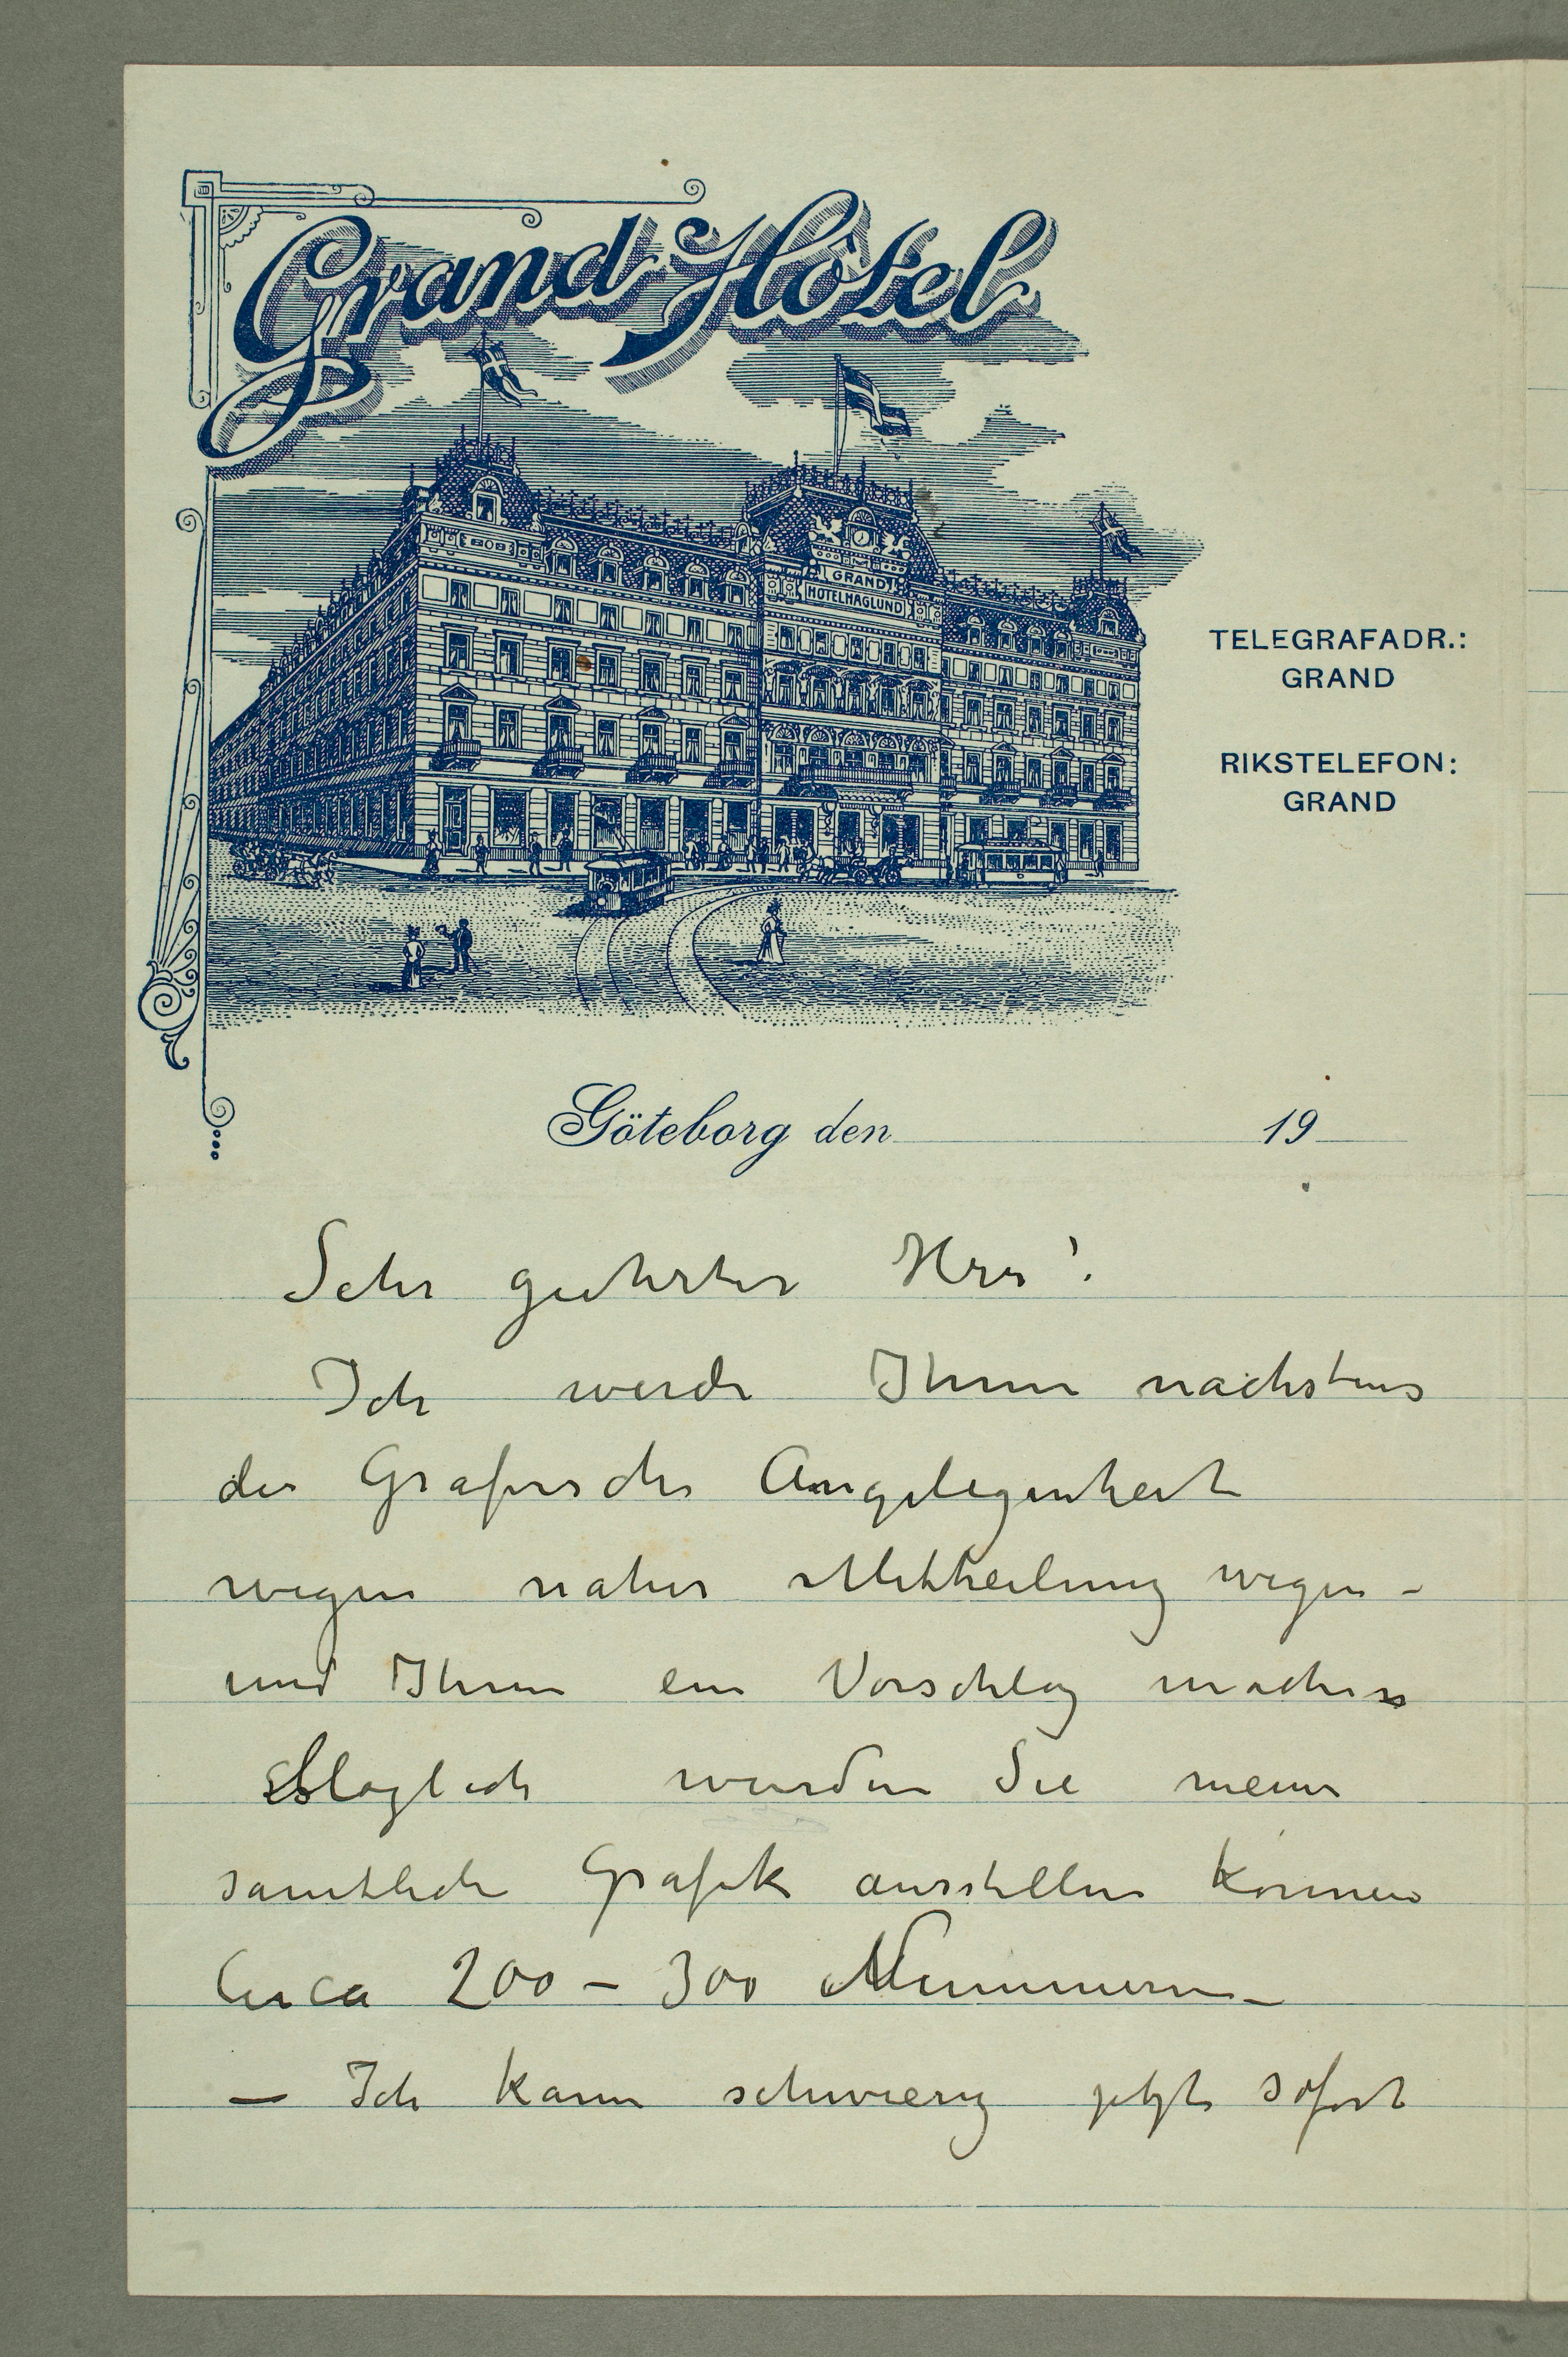 Grand Hôtel
GRAND
HOTEL HAGLUND
TELEGRAFADR.:
GRAND
RIKSTELEFON:
GRAND
Göteborg den 19
Sehr geehrter Herr!
Ich werde Ihnen nächstens
der Grafische Angelegenheit
wegen naher Mittheilung wegen –
und Ihnen ein Vorschlag machen
werden Sie meine
samtliche Grafik ausstellen können
Circa 200 – 300 Nummern –
– Ich kann schwierig jetzt sofort